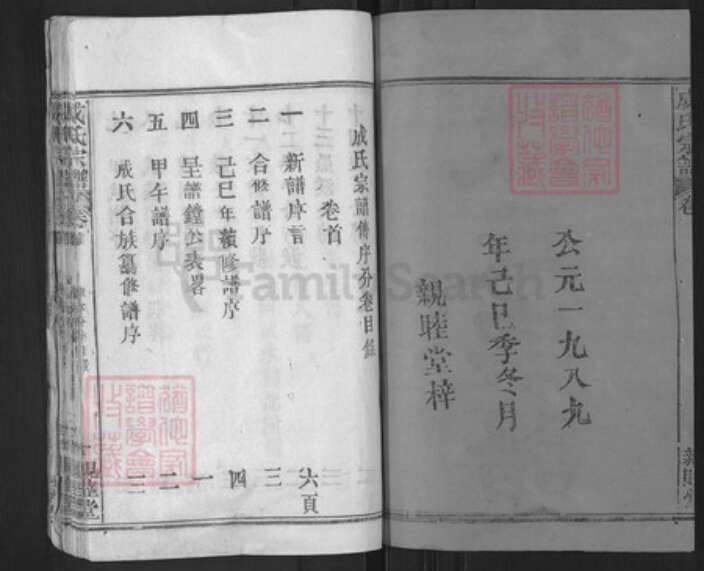 成氏宗譜卷
公元一九八九
年己巳季冬月
親睦堂梓
成氏宗譜傳序分卷目錄
卷首
一 新譜序言 六頁
二 合修譜序 三
三 己巳年續修譜序 四
四 呈譜鏜公表畧 一
五 甲午譜序 二
六 成氏合族纂修譜序 三
成氏宗譜卷
睦堂
FamilySearch